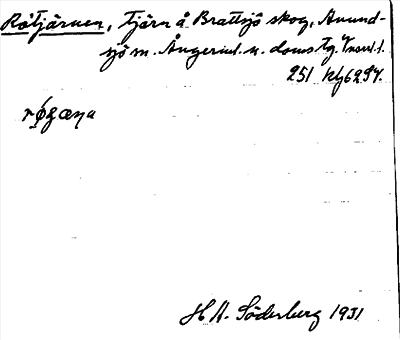 Rötjärnen, tjärn å Brattsjö skog, Anund-
sjö sn. Ångerml. n. doms tg.
251 Kbg 6297.
røʒæna
H A. Söderberg 1931